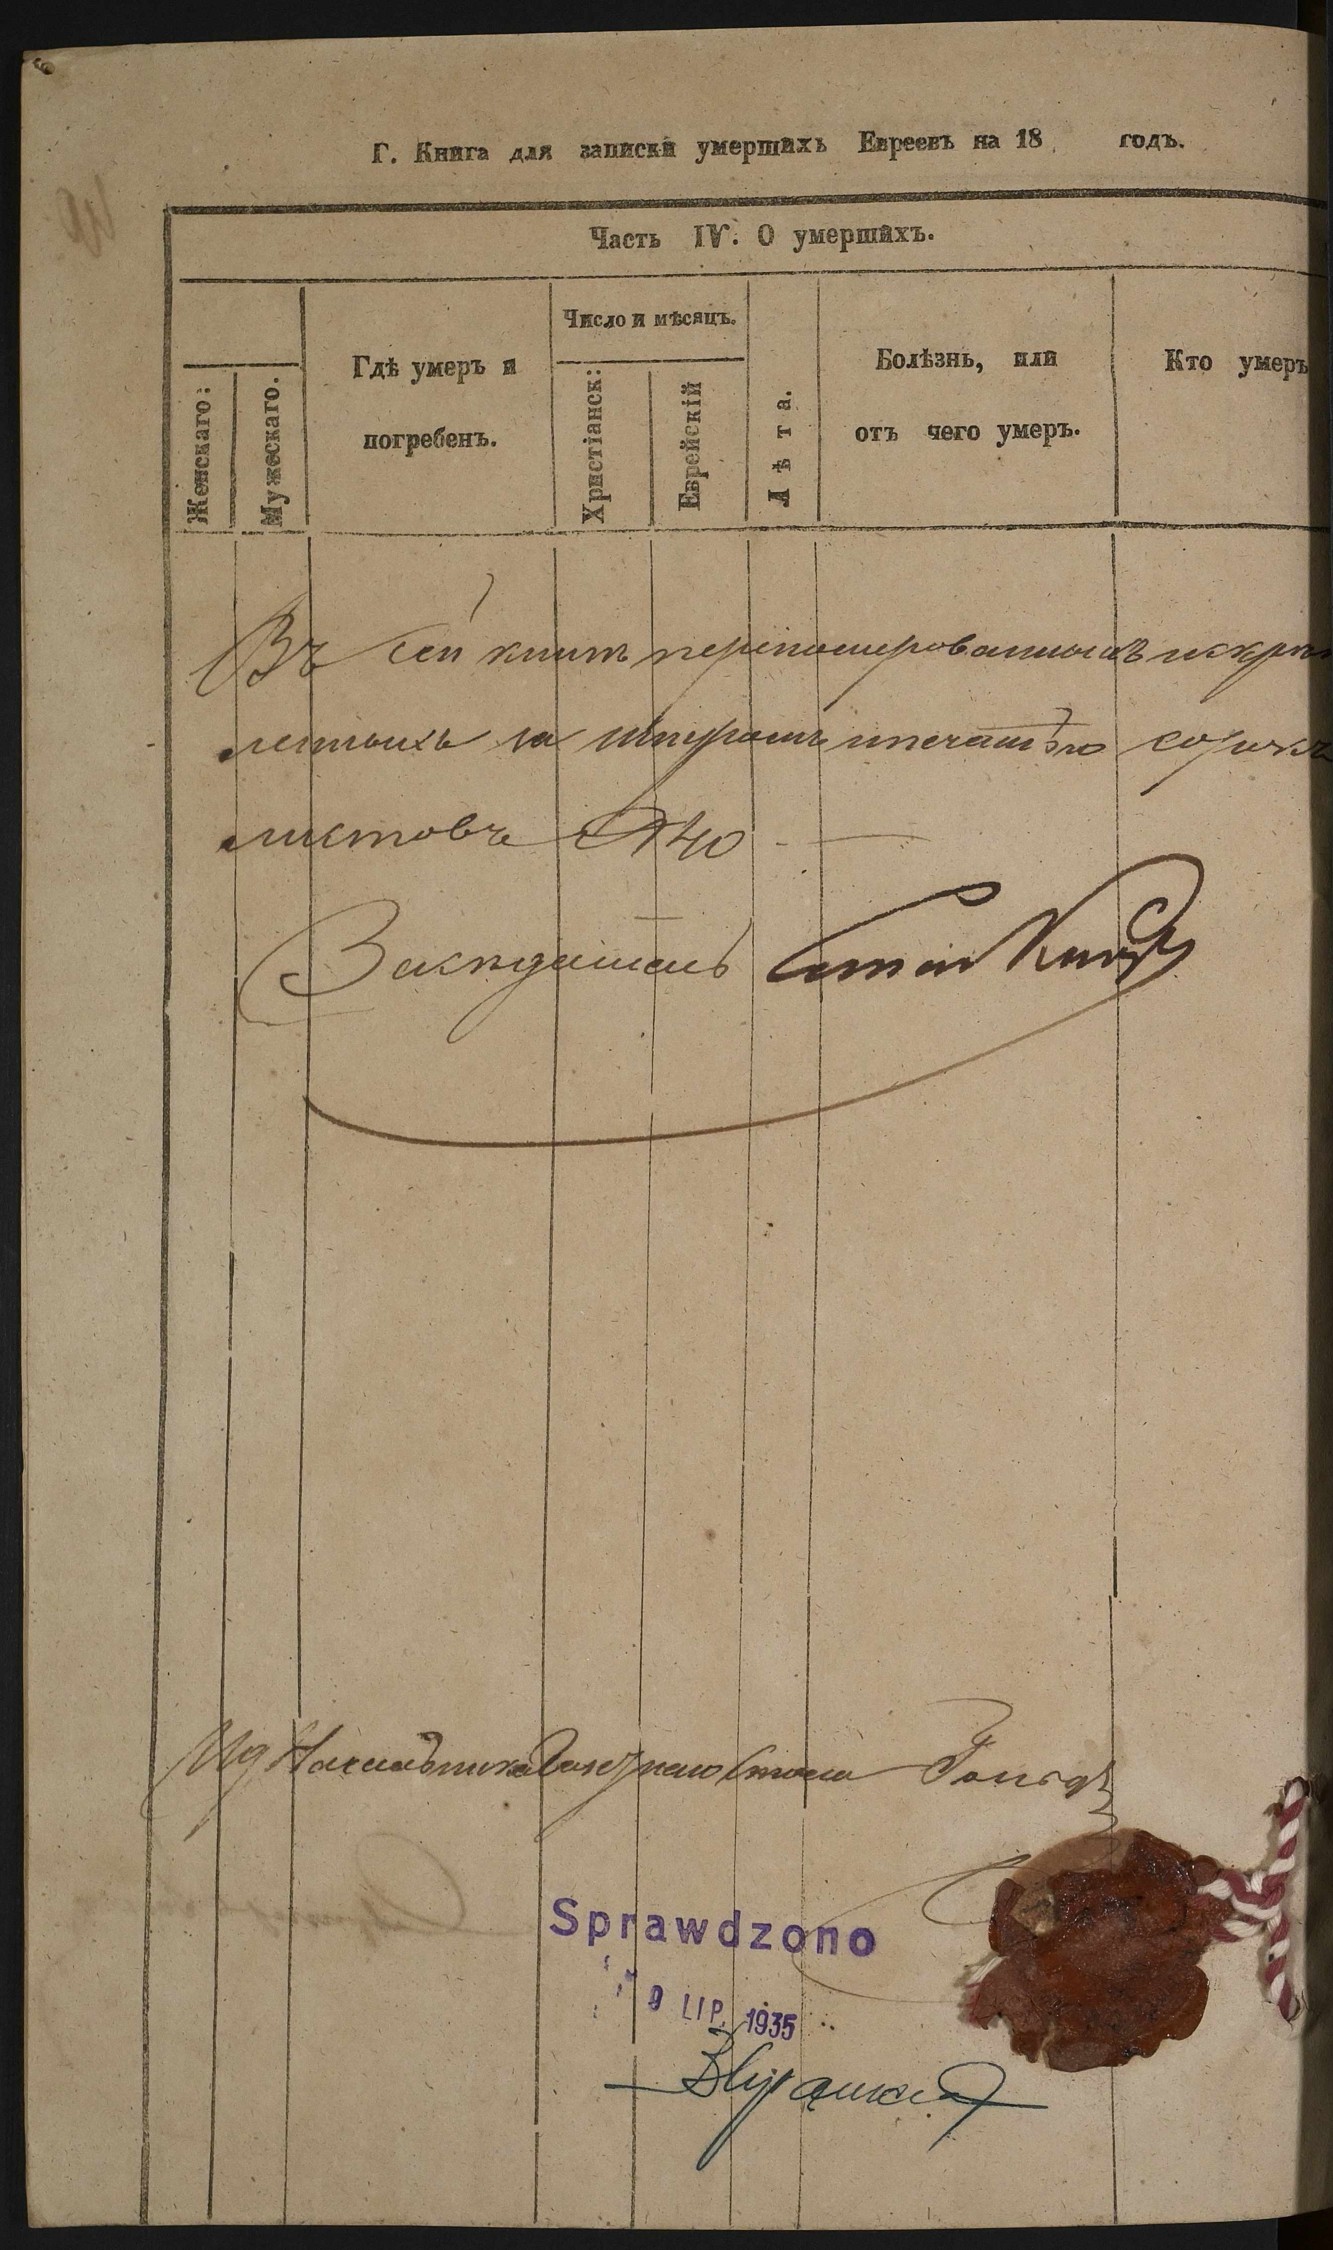 Г. Книга для записки умершихъ Евреевъ на 18 годъ.
Часть IV. О умершихъ.
Женскаго:
Мужескаго.
Гдѣ умеръ и
погребенъ.
Число и мѣсяцъ.
Христіанск:
Еврейскій
Лѣта.
Болѣзнь, или
отъ чего умеръ.
Кто умеръ
Въ сей книгѣ перономерованныхъ и скрѣп
ленныхъ за шнуромъ и печатью сорокъ
листовъ №40
Засѣдатель
Ид Начальника Стола Гольд
Sprawdzono
9 LIP. 1935